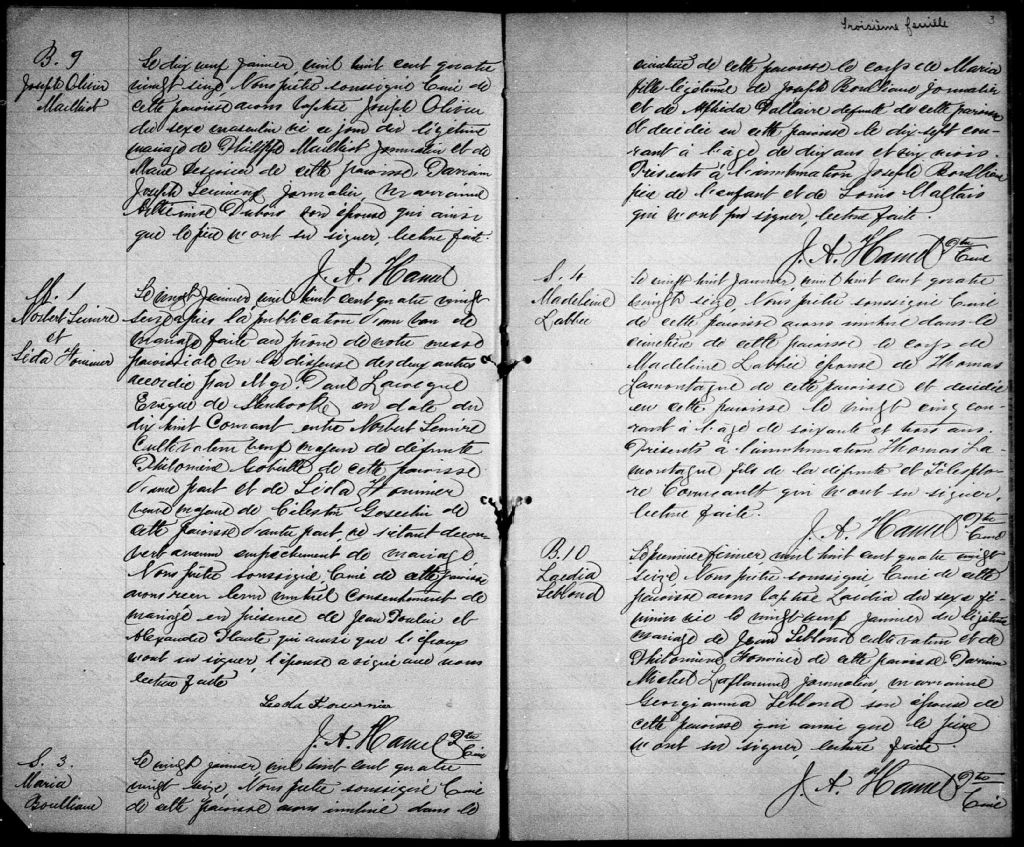 B. 9
Joseph Olivier
Mailhiot
Le dix neuf janvier mil huit cent quatre
vingt seize Nous prêtre soussigné Curé de
cette paroisse avons baptisé Joseph Olivier
du sexe masculin né ce jour du légitime
mariage de Philippe Mailhiot Journalier et de
Marie de cette paroisse. Parrain
Joseph journalier, marraine
Dubois son épouse qui ainsi
que le père n'ont su signer, lecture faite.
J. A. Hamel
M. 1
Norbert Lemire
et
Léda Fournier
Le vingt janvier mil huit cent quatre vingt
seize après la publication d'un ban de
mariage faite au prône de notre messe
paroissiale vu la dispense des deux autres
accordée par Mgr. Paul Larocque
Evêque de Sherbrooke en date du
dix huit Courant, entre Norbert Lemire
Cultivateur veuf majeur de défunte
Philomène de cette paroisse
d'une part et de Léda Fournier
veuve majeure de Célestin Gosselin de
cette paroisse d'autre part, ne s'étant décou-
vert aucun empêchement de mariage
Nous prêtre soussigné Curé de cette paroisse
avons reçu leur mutuel Consentement de
mariage en présence de Jean Poulin et
Alexandre qui ainsi que l'époux
n'ont su signer, l'épouse a signé avec nous
lecture faite
Leda Fournier
J. A. Hamel Ptre
Curé
S. 3.
Maria
Boulliane
Le vingt janvier mil huit cent quatre
vingt seize, Nous prêtre soussigné Curé
de cette paroisse avons inhumé dans le
Troisième feuille
3
cimetière de cette paroisse le corps de Maria
fille légitime de Joseph Boulliane Journalier
et de Dallaire défunte de cette paroisse
et décédée en cette paroisse le dix-sept cou-
rant à l'âge de dix ans et six mois.
Présents à l'inhumation Joseph Boulliane
père de l'enfant et de Louis Maltais
qui n'ont pu signer, lecture faite.
J. A. Hamel Ptre
Curé
S. 4
Madeleine
Labbée
Le vingt huit Janvier, mil huit cent quatre
vingt seize, Nous prêtre soussigné Curé
de cette paroisse avons inhumé dans le
cimetière de cette paroisse le corps de
Madeleine Labbée épouse de Thomas
Lamontagne de cette paroisse et décédée
en cette paroisse le vingt cinq cou-
rant à l'âge de soixante et trois ans.
Présents à l'inhumation Thomas La-
montagne fils de la défunte et Télespho-
re qui n'ont su signer,
lecture faite.
J. A. Hamel Ptre
Curé
B. 10
Laedia
Leblond
Le premier février mil huit cent quatre vingt
seize. Nous prêtre soussigné Curé de cette
paroisse avons baptisé Laedia du sexe fé-
minin née le vingt neuf janvier du légitime
mariage de Jean Leblond cultivateur et de
Philomène Fournier de cette paroisse. Parrain
Michel Laflamme journalier, marraine
Georgianna Leblond son épouse de
cette paroisse qui ainsi que le père
n'ont su signer, lecture faite.
J. A. Hamel Ptre
Curé